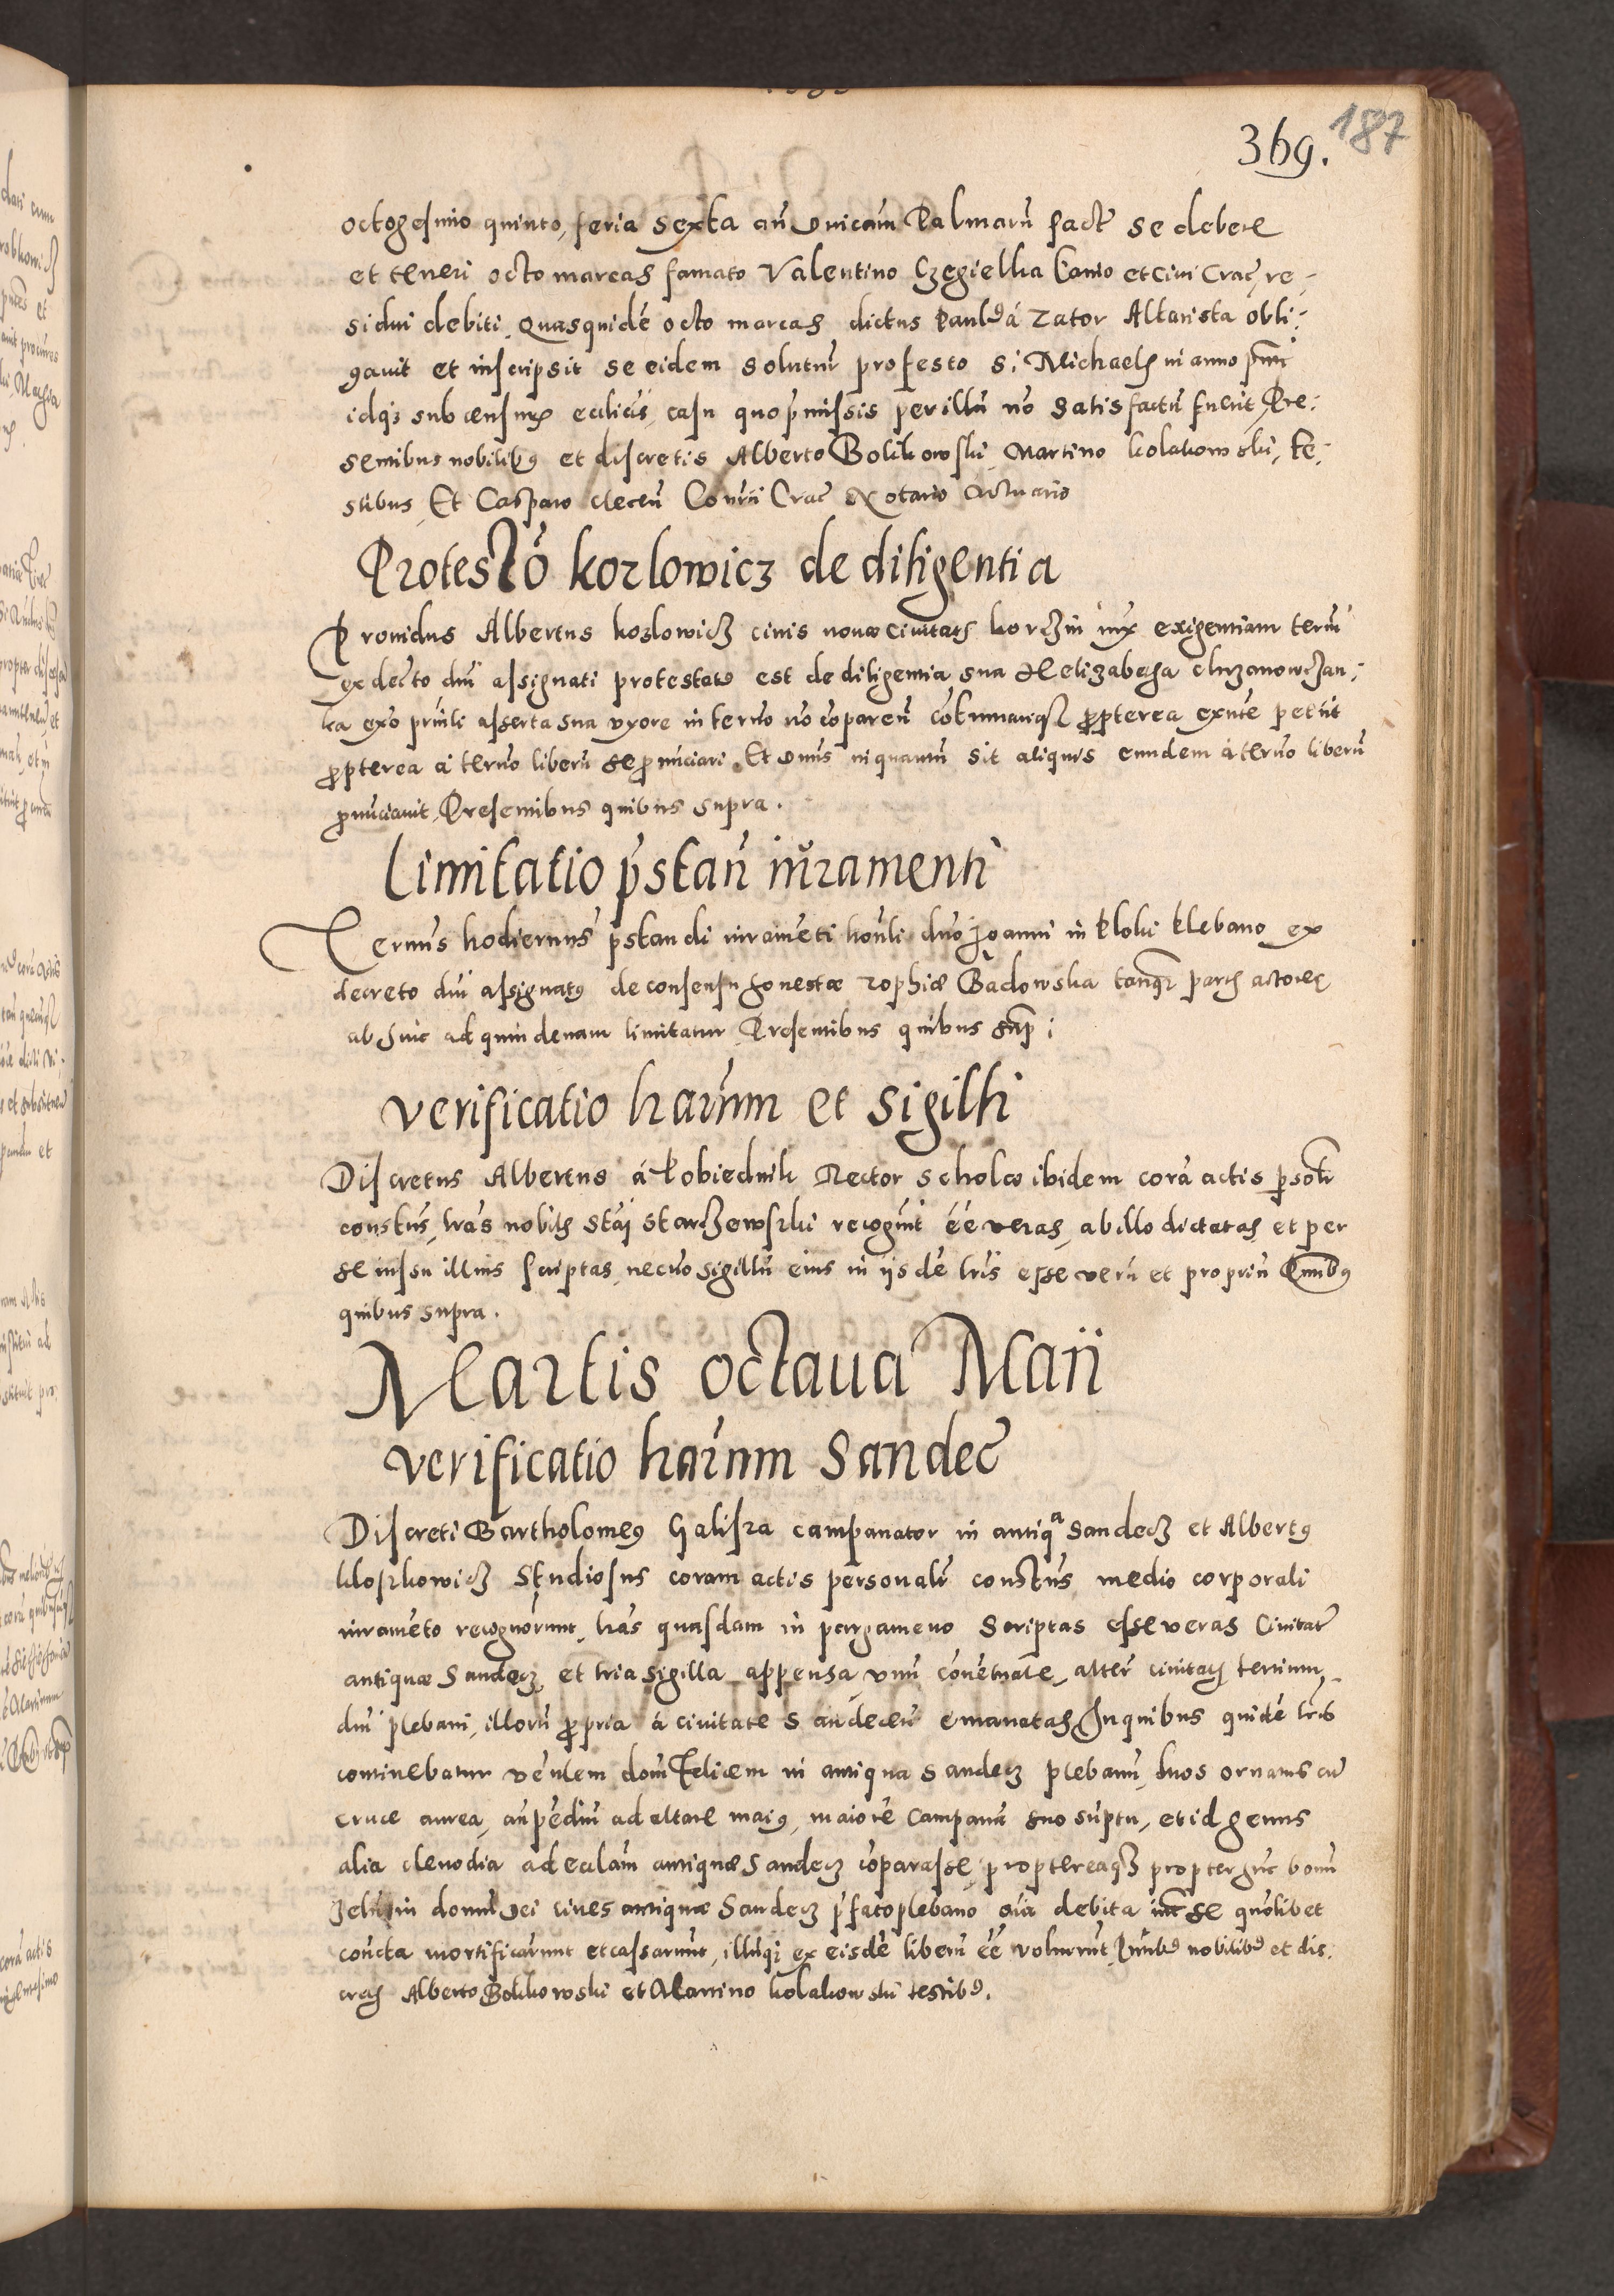 369. 187
octogesimo quinto, feria sexta an̄ d̄nicam Palmarū fact̄ se debere
et teneri octo marcas famato Valentino Czegielka Lanio et ciui Crac̄, re-
sidui debiti. Quasquidē octo marcas dictus Paulꝰ á Zator Altarista obli-
gauit et inscripsit se eidem soluturū pro festo S. Michaelis in anno p̄nti
idq; sub censuris ecclicis, casu quo p̄missis per illū nō satisfactū fuerit, Pre-
sentibus nobilibꝰ et discretis Alberto Bolikowski, Martino kolakowski, te-
stibus, Et Casparo clerico Conrii Crac̄ Notario Actuario
Protestō kozlowicz de diligentia
Prouidus Albertus kozlowicz ciuis nouæ Ciuitatis korczin iux exigentiam term̄
ex decto dni assignati protestatꝰ est de diligentia sua Et elizabetha chrzanowczan-
ka exō priuli asserta sua vxore in term̄o nō cōparen̄ cōtumaciaq; p̱pterea exn̄te petiit
p̱pterea á term̄o liberū se p̱nunciari. Et d̄nus in quantū sit aliquis eundem á term̄o liberū
p̱nūciauit, Presentibus quibus supra.
Limitatio p̄stan̄ iūramenti
Term̄s hodiernus p̄standi iuramēti hon̄li dn̄o Joanni in kloki klebano ex
decreto dni assignatꝰ de consensu honestæ Zophiæ Bądowska tanq; partis actoreę
ab hinc ad quindenam limitatur Presentibus quibus sup̱:
verificatio l̄rarum et sigilli
Discretus Albertus á Łobiednik Rector Scholæ ibidem corā actis p̱sonlr̄
constus, l̄ras nobilis Stāj Starzewski recogn̄it ēē veras, ab illo dictatas et per
se iussu illius scriptas, necnō sigillū eius in ijsdē lr̄is esse verū et propriū Pn̄tibꝰ
quibus supra.
Martis octaua Maij
verificatio l̄rarum Sandec̄
Discreti Bartholomeꝰ Galiska campanator in antiqᵃ Sandecz et Albertꝰ
kloskowicz Studiosus coram actis personalr̄ constus medio corporali
iuramēto recognorunt, l̄ras quasdam in pergameno Scriptas esse veras Ciuitat̄
antiquæ Sandecz, et tria sigilla appensa vnū cōuētuale, alterū ciuitatis tertium
dni plebani, illorū p̱pria á ciuitate Sandecen̄ emanatas In quibus quidē lr̄is
continebatur vēnlem dom̄ Felicem in antiqua Sandecz plebanū, duos ornatus cū
cruce aurea, an̄pēdiū ad altare maiꝰ, maiorē campanā suo sūptu, et id genus
alia clenodia ad eccl̄am antiquæ Sandecz cōparasse, proptereaq; propter hūc bonū
zelū in domū dei ciues antiquæ Sandecz p̄fato plebano oīa debita int̄ se quōlibet
cōncta mortificarunt et cassarunt, illūq; ex eisdē liberū ēē voluerūt, Pn̄tibꝰ nobilibꝰ et dis-
cretis Alberto Bolikowski et Martino kolakowski testibꝰ.